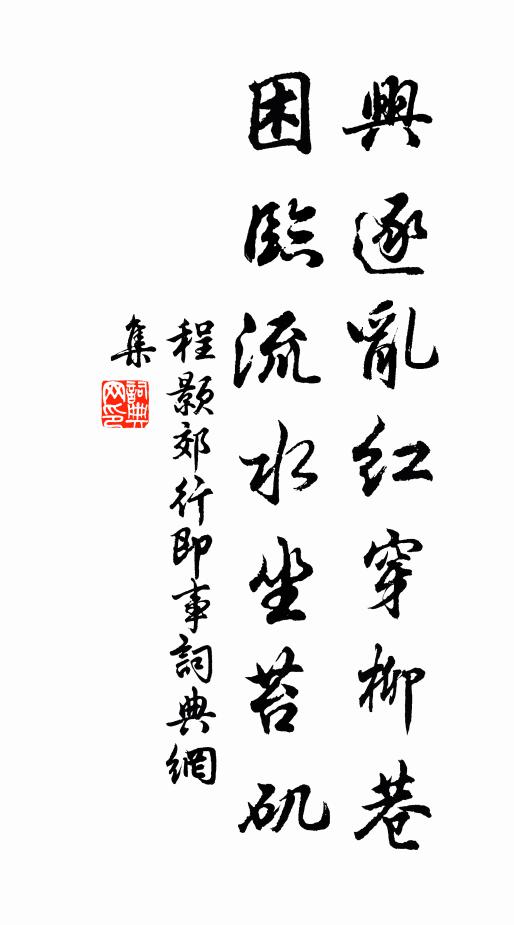 興逐亂紅穿柳巷
困臨流水坐苔矶
程顥郊行即事詞典網
集
詞典
网印